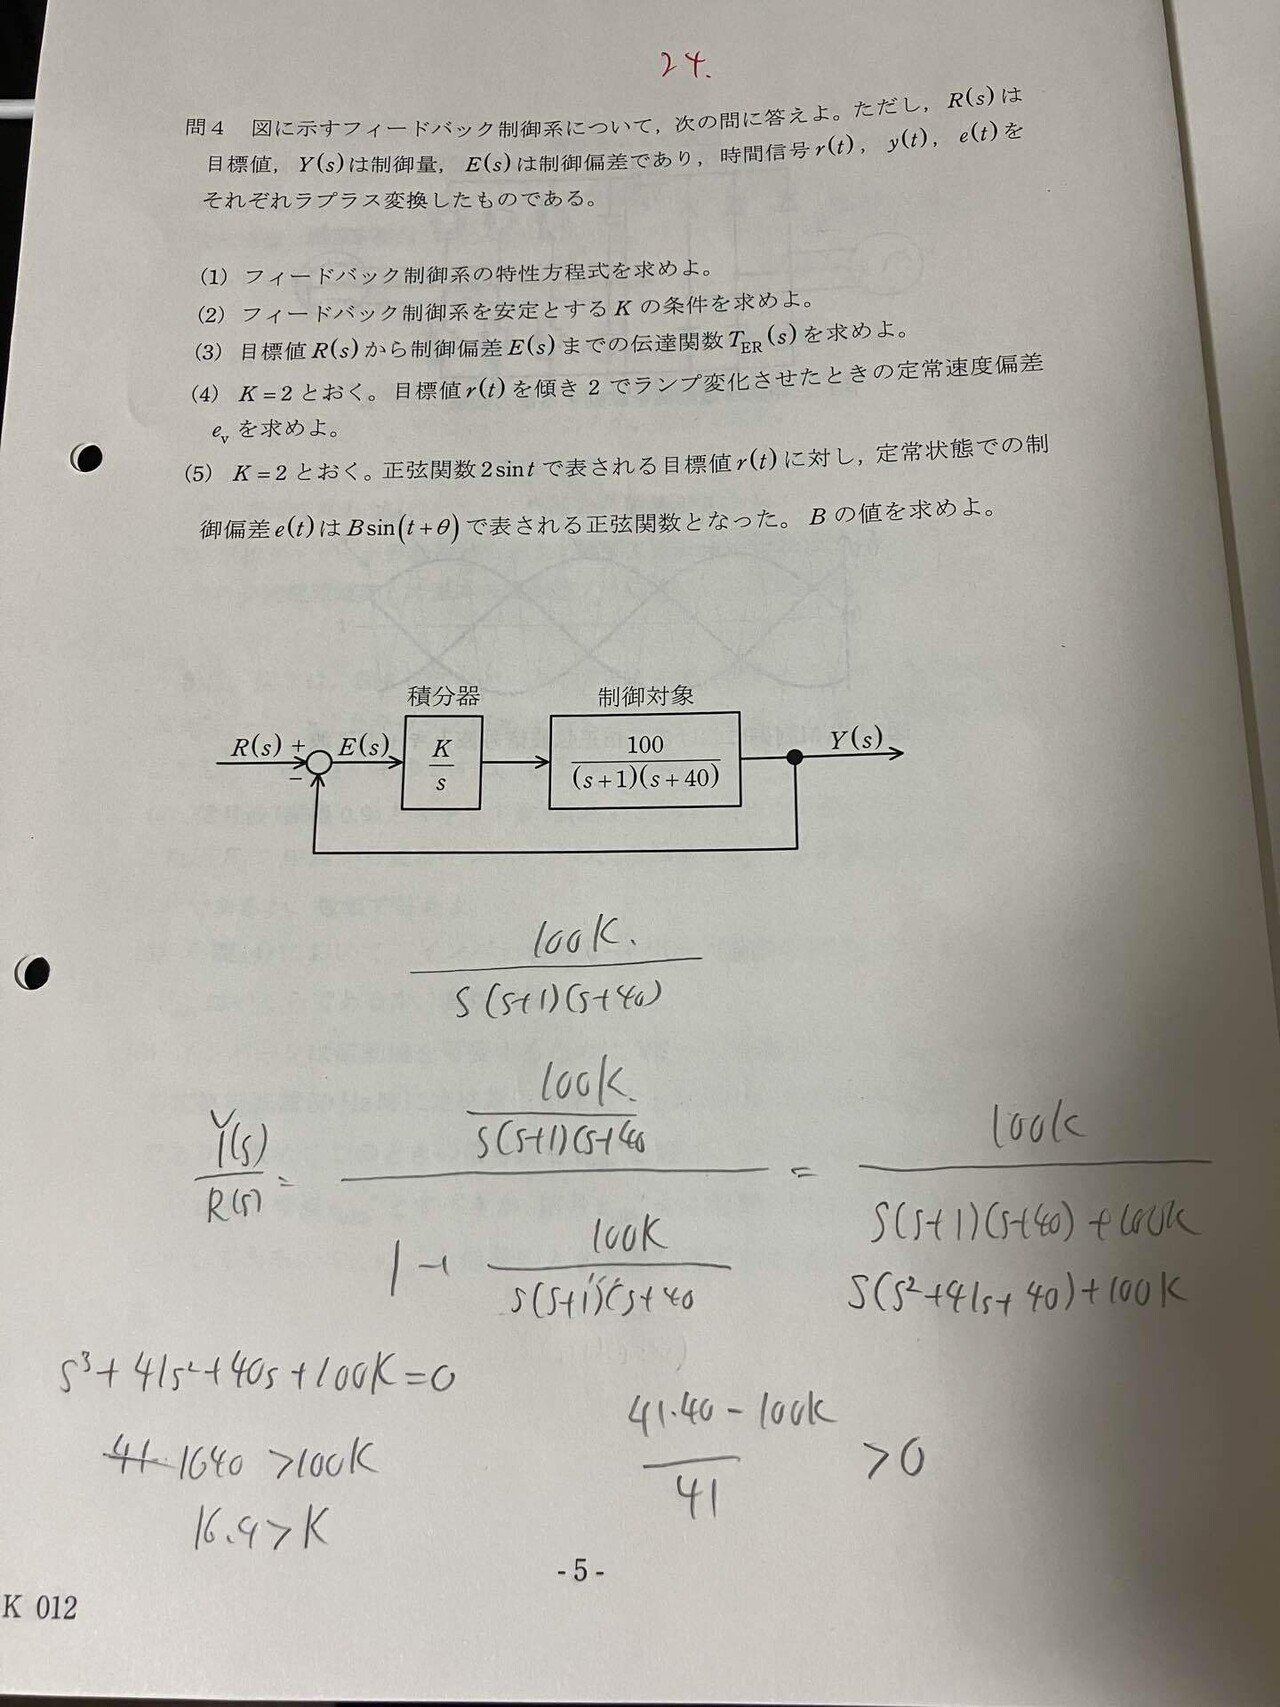 24.
問4 図に示すフィードバック制御系について，次の問に答えよ。ただし，R(s)は
目標値，Y(s)は制御量，E(s)は制御偏差であり，時間信号r(t)，y(t)，e(t)を
それぞれラプラス変換したものである。
(1) フィードバック制御系の特性方程式を求めよ。
(2) フィードバック制御系を安定とするKの条件を求めよ。
(3) 目標値R(s)から制御偏差E(s)までの伝達関数T_ER(s)を求めよ。
(4) K=2とおく。目標値r(t)を傾き2でランプ変化させたときの定常速度偏差
e_vを求めよ。
(5) K=2とおく。正弦関数2sintで表される目標値r(t)に対し，定常状態での制
御偏差e(t)はBsin(t+θ)で表される正弦関数となった。Bの値を求めよ。
積分器 制御対象
R(s) + − E(s) K/s 100/((s+1)(s+40)) Y(s)
100K.
S(S+1)(S+40)
100K.
S(S+1)(S+40
Y(s)
R(s)
=
=
100K
S(S+1)(S+40)+100K
S(S²+41s+40)+100K
100K
S(S+1)(S+40
S³+41s²+40s+100K=0
41·40-100K
41
>0
1640>100K
>K
-5-
K 012